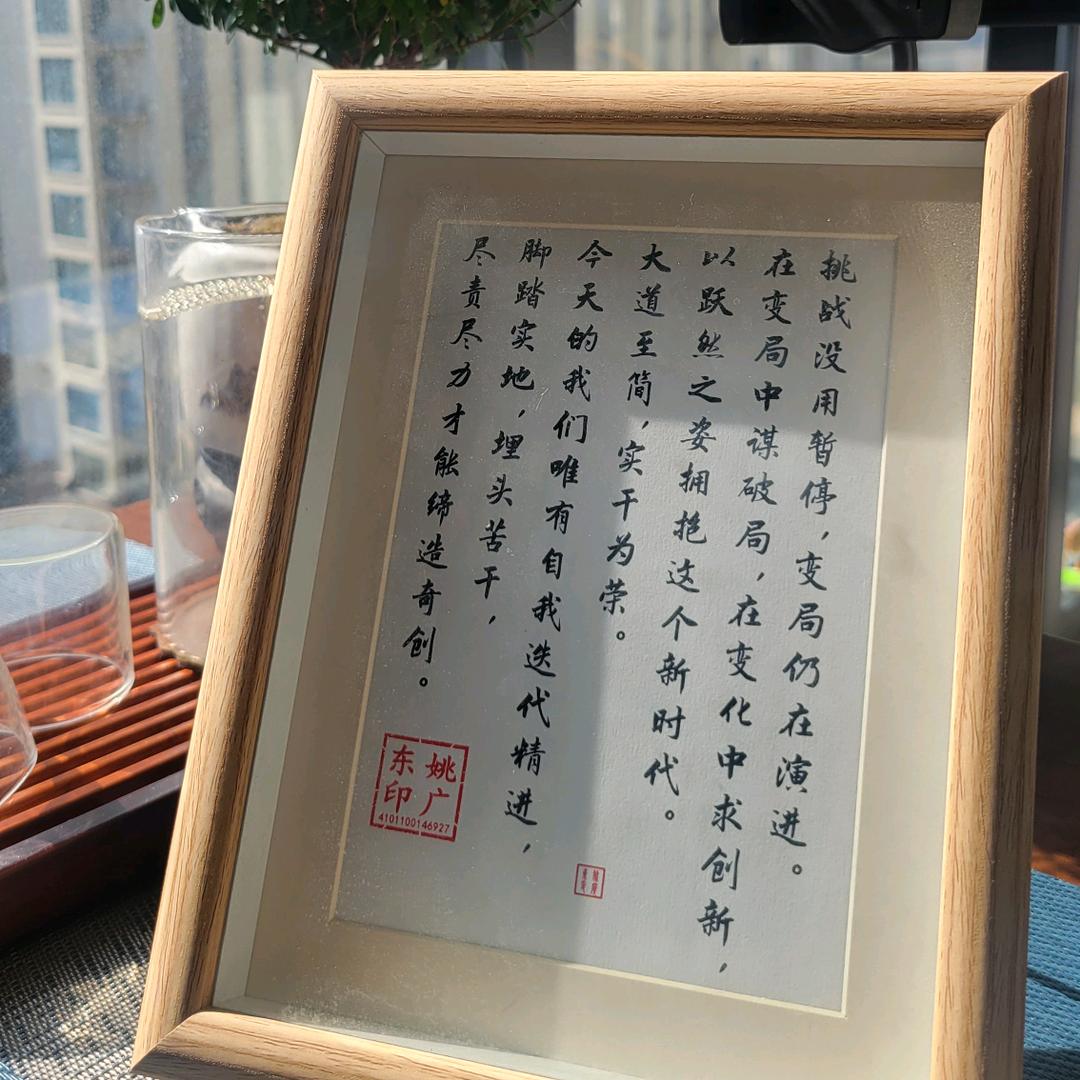 挑战没用暂停，变局仍在演进。
在变局中谋破局，在变化中求创新，
以跃然之姿拥抱这个新时代。
大道至简，实干为荣。
今天的我们唯有自我迭代精进，
脚踏实地，埋头苦干，
尽责尽力才能缔造奇创。
姚广
东印
4101100146927